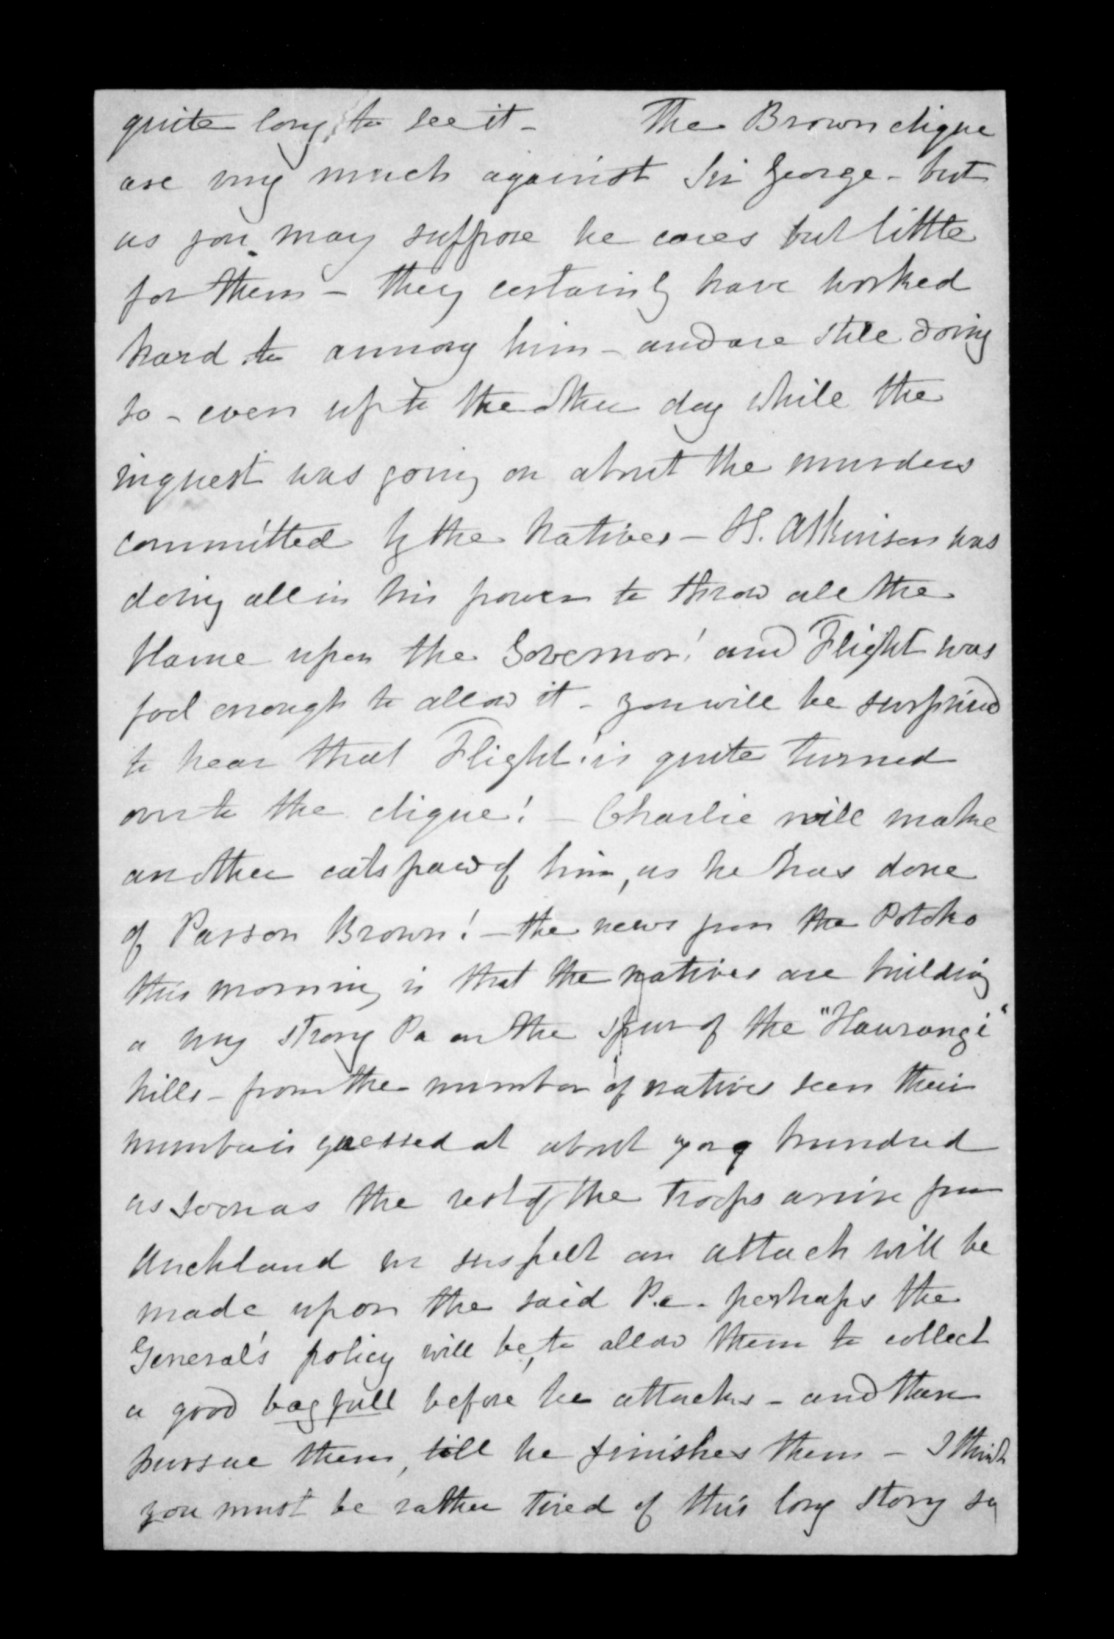 quite long to see it - The Brown clique
are very much against Sir George - but
as you may suppose he cares but little
for them - they certainly have worked
hard to annoy him - and are still doing
so - even up to the other day while the
inquest was going on about the murders
committed by the Natives - H. Atkinson was
doing all in his power to throw all the
blame upon the Governor! and Flight was
fool enough to allow it - you will be surprised
to hear that Flight is quite turned
over to the clique! - Charlie will make
another catspaw of him, as he has done
of Parson Brown! - the news from the Potoko
this morning is that the natives are building
a very strong Pa on the spur of the "Hauranga"
hills - from the number of natives seen their
number is guessed at about hundred
as soon as the rest of the troops arrive from
Auckland we suspect an attack will be
made upon the said Pa. perhaps the
General's policy will be, to allow them to collect
a good bag full before he attacks - and then
pursue them, till he finishes them - I think
you must be rather tired of this long story so